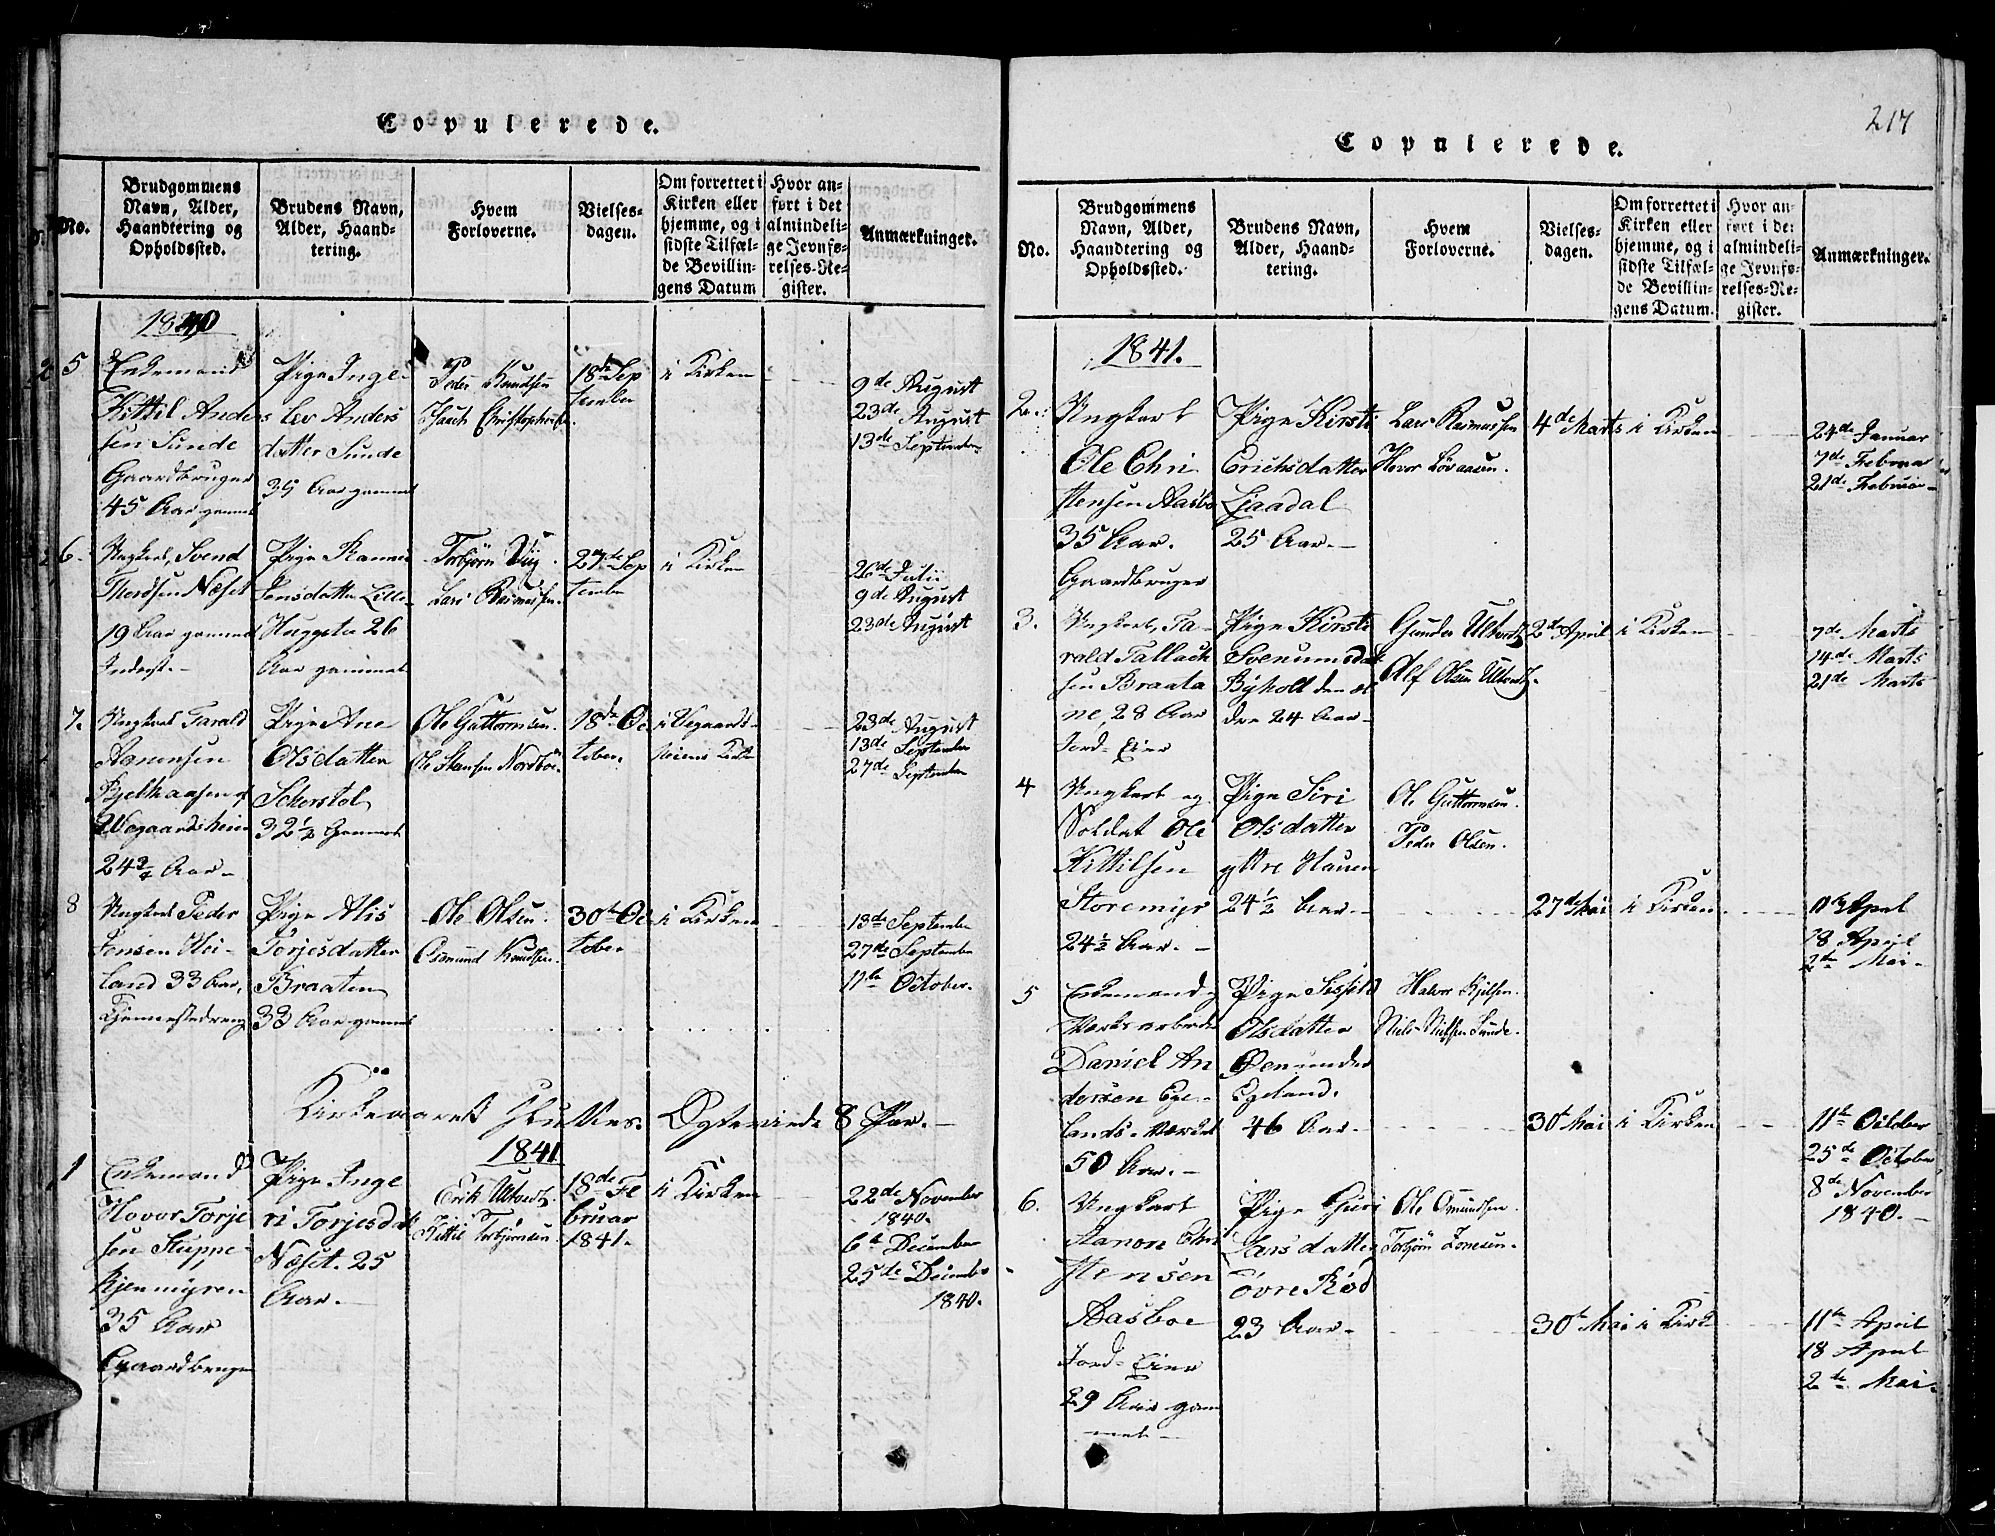 Copulerede.
No.
Brudgommens
Navn, Alder,
Haandtering og
Opholdssted.
Brudens Navn,
Alder, Haand-
tering.
Hvem
Forloverne.
Vielses-
dagen.
Om forrettet i
Kirken eller
hjemme, og i
sidste Tilfæl-
de Bevillin-
gens Datum
Hvor an-
ført i det
almindeli-
ge Jevnfø-
relses-Re-
gister.
Anmærkninger.
1840
5
Enkemand
Kittil Anders
sen Sunde
Gaardbruger
45 Aar gammel
Pige Inge-
lev Anders
datter Sunde
35 Aar gammel
Peder Knudsen
Isach Christophersen
18de Sep
tember
i Kirken
9de August
23de August
13de September
6.
Ungkarl, Svend
Therdsen Næset
19 Aar gammel
Inderst.
Pige Rannei
Jensdatter Lille
Haggeta 26
Aar gammel
Torbjørn Vig
Lars Rasmussen
27de Sep
tember
i Kirken
26de Julii
9de August
23de August
7.
Ungkarl Tarald
Aanonsen
Wegaardsheien
24 3/4 Aar
Pige Ane
Olsdatter
Scherstøl
32 1/2 Gammel
Ole Guttormsen
Ole Nordbøe
18de Oc
tober.
i Vegaards-
heiens Kirke
23de August
13de September
27de September
8
Ungkarl Peder
Jensen Hei-
land 33 Aar,
Tjennestedreng
Pige Alis
Torjesdatter
Braaten
33 Aar gammel
Ole Olsen
Osmund Knudsen
30te Oc
tober
i Kirken
13de September
27de September
11te October.
Kirkeaaret sluttes. Ægteviede 8 Par.
1841
1
Enkemand
Hovor Torje
sen Skuppe-
kjenmyren
35 Aar
Gaardbruger
Pige Inge
ri Torjesdat
Næset. 25
Aar.
Erik Ulltveit
Kittil Torbjørnsen
18de Fe
bruar
1841.
i Kirken
22de November
1840.
6te December
25de December
1840.
217
Copulerede.
No.
Brudgommens
Navn, Alder,
Haandtering og
Opholdssted.
Brudens Navn,
Alder, Haand-
tering.
Hvem
Forloverne.
Vielses-
dagen.
Om forrettet i
Kirken eller
hjemme, og i
sidste Tilfæl-
de Bevillin-
gens Datum.
Hvor an-
ført i det
almindeli-
ge Jevnfø-
relses-Re-
gister.
Anmærkninger.
1841.
2.
Ungkarl
Ole Chri
stensen Aasbø
35 Aar.
Gaardbruger
Pige Kirsti
Erichsdatter
Ljaadal
25 Aar.
Lars Rasmussen
Hovor
4de Marts
i Kirken
24de Januar
7de Februar
21de Februar
3.
Ungkarl, Ta-
rald Tallach
sen Braata
ne, 28 Aar
Jord-Eier
Pige Kirsti
Svenumsdat
Byholt den æl
dre 24 Aar
Gunder Ulltveit
Alf Olsen Ulltveit
2den April
i Kirken
7de Marts
14de Marts
21de Marts
4
Ungkarl og
Soldat Ole
Kittilsen
Storemyr
24 1/2 Aar.
Pige Siri
Olsdatter
yttre Hauen
24 1/2 Aar
Ole Guttormsen
Peder Olsen.
27de Mai
i Kirken
11te April
18 April
2den Mai
5
Enkemand og
Verksarbeider
Daniel An
dersen Ege-
lands-Værket
50 Aar.
Pige Sissel
Olsdatter
Øen under
Egeland.
46 Aar
Halvor Kjelsen
Niels Nielsen Sunde.
30te Mai
i Kirken
11te October
25de October
8de November
1840.
6.
Ungkarl
Aanon Chri
stensen
Aasboe
Jord-Eier
29 Aar gam
mel
Pige Guri
Larsdatter
øvre Rød
23 Aar
Ole Osmundsen
Torbjørn Jonesen
30te Mai
i Kirke
11te April
18 April
2den Mai.